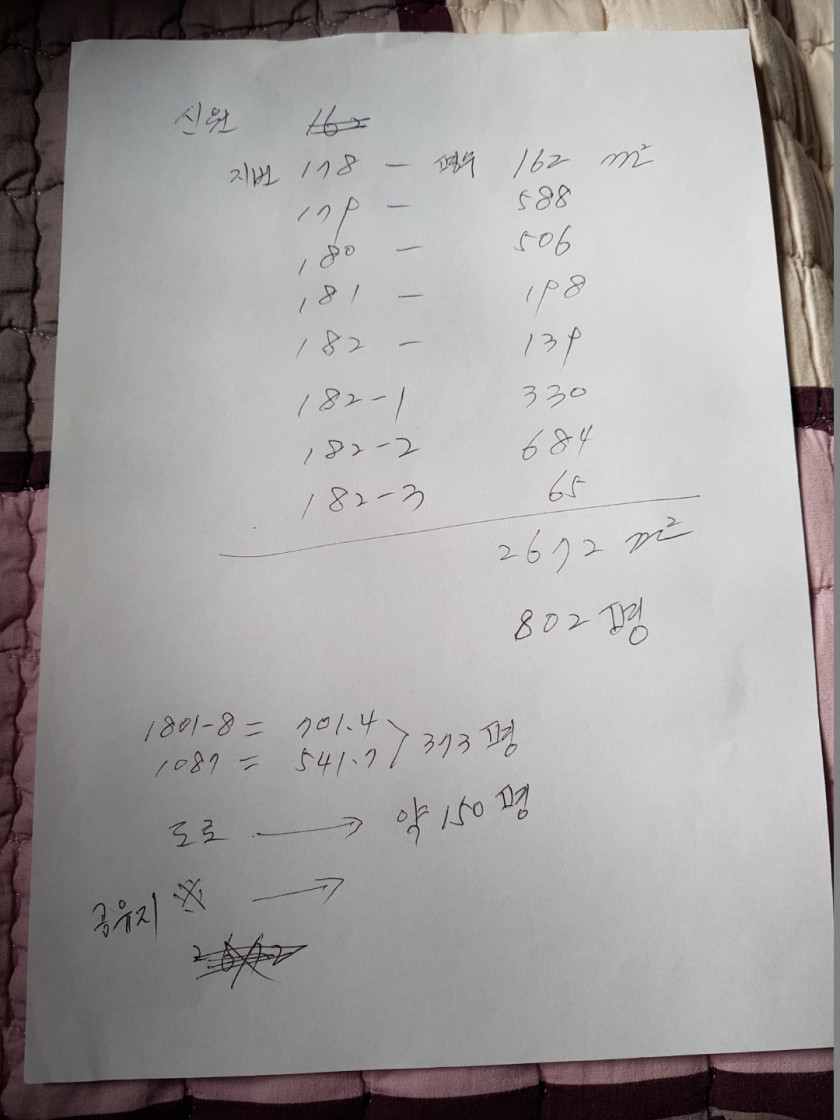 신원 162
지번 178 - 평수 162 m²
179 - 588
180 - 506
181 - 198
182 - 139
182-1 330
182-2 684
182-3 65
2672 m²
802평
1801-8 = 701.4
1087 = 541.7 > 373평
도로 → 약 150평
공유지 ※ →